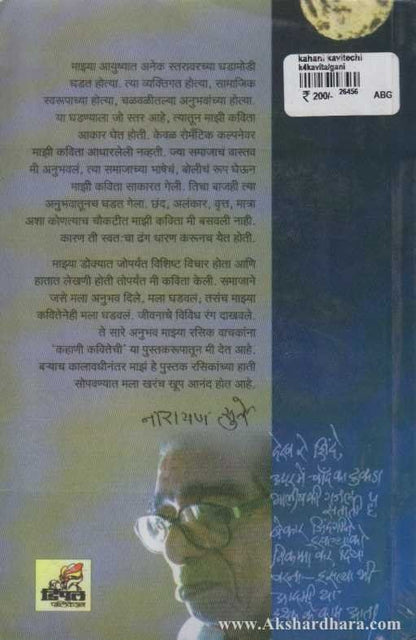 kahani kavitechi
k4kavita/gani
₹ 200/- 26456 ABG
माझ्या आयुष्यात अनेक स्तरावरच्या घडामोडी
घडत होत्या. त्या व्यक्तिगत होत्या, सामाजिक
स्वरूपाच्या होत्या, चळवळीतल्या अनुभवांच्या होत्या.
या घडण्याला जो स्तर आहे, त्यातून माझी कविता
आकार घेत होती. केवळ रोमँटिक कल्पनेवर
माझी कविता आधारलेली नव्हती. ज्या समाजाचं वास्तव
मी अनुभवलं, त्या समाजाच्या भाषेचं, बोलीचं रूप घेऊन
माझी कविता साकारत गेली. तिचा बाजही त्या
अनुभवातूनच घडत गेला. छंद, अलंकार, वृत्त, मात्रा
अशा कोणत्याच चौकटीत माझी कविता मी बसवली नाही.
कारण ती स्वतःचा ढंग धारण करूनच येत होती.
माझ्या डोक्यात जोपर्यंत विशिष्ट विचार होता आणि
हातात लेखणी होती तोपर्यंत मी कविता केली. समाजाने
जसे मला अनुभव दिले, मला घडवलं, तसंच माझ्या
कवितेनेही मला घडवलं. जीवनाचे विविध रंग दाखवले.
ते सारे अनुभव माझ्या रसिक वाचकांना
'कहाणी कवितेची' या पुस्तकरूपातून मी देत आहे.
बऱ्याच कालावधीनंतर माझं हे पुस्तक रसिकांच्या हाती
सोपवण्यात मला खरंच खूप आनंद होत आहे.
नारायण सुर्वे
डिंपल
पब्लिकेशन
www.Akshardhara.com